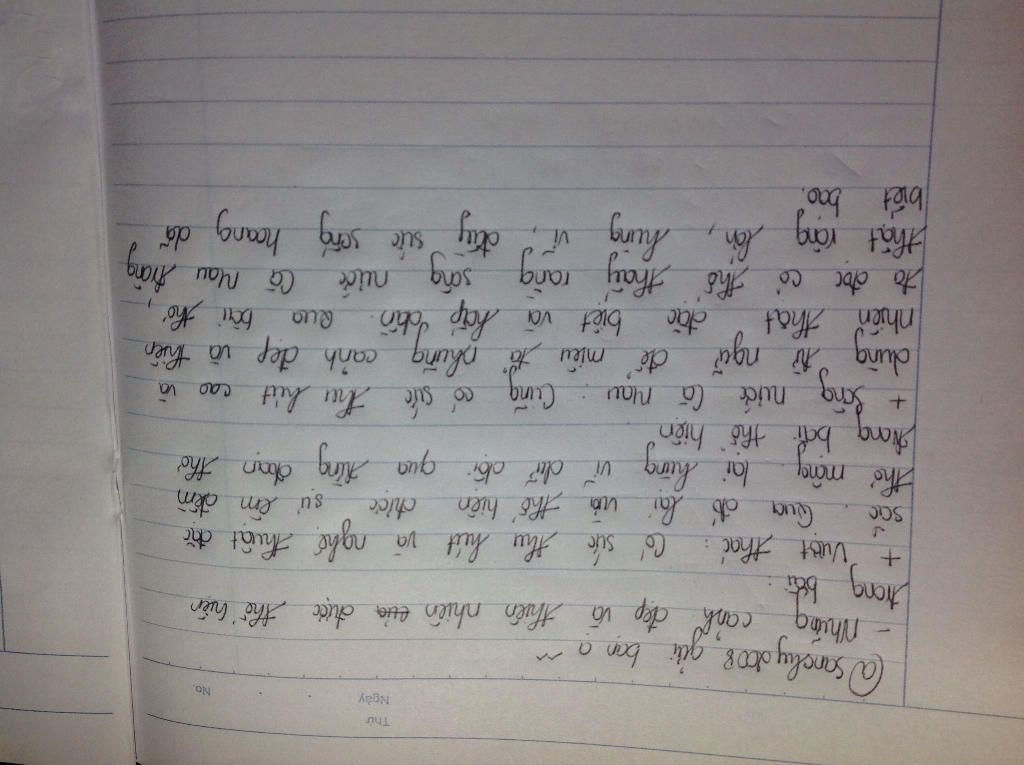 Thứ
Ngày
No.
@sanchydoo8 gửi bạn ạ ~
- Những cảnh đẹp và thiên nhiên được thể hiện
trong bài:
+ Vượt thác: Có sức thu hút và nghệ thuật đặc
sắc. Qua đó lại vừa thể hiện được sự êm đềm
thơ mộng lại hùng vĩ dữ dội qua từng đoạn thơ
trong bài thể hiện
+ Sông nước Cà Mau: Cũng có sức thu hút cao và
dùng từ ngữ để miêu tả những cảnh đẹp và thiên
nhiên thật đặc biệt và hấp dẫn. Qua bài thơ,
ta đọc có thể thấy rằng sông nước Cà Mau trông
thật rộng lớn, hùng vĩ, đầy sức sống hoang dã
biết bao.